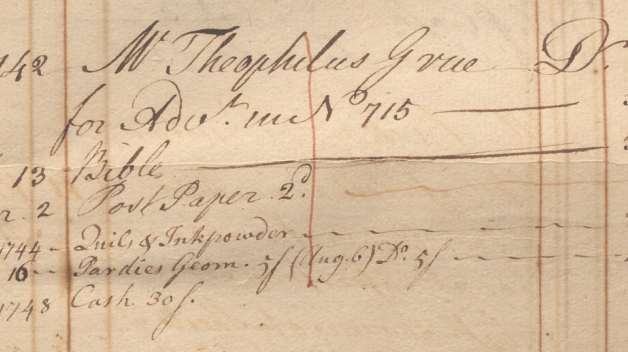 42 Mr Theophilus Grue Dr.
for Advt. in No 715
13 Bible
r. 2 Post Paper. 2d.
1744 Quils & Inkpowder
16 Pardies Geom. 5/ (Aug. 6) Do. 5/
1748 Cash 30/.